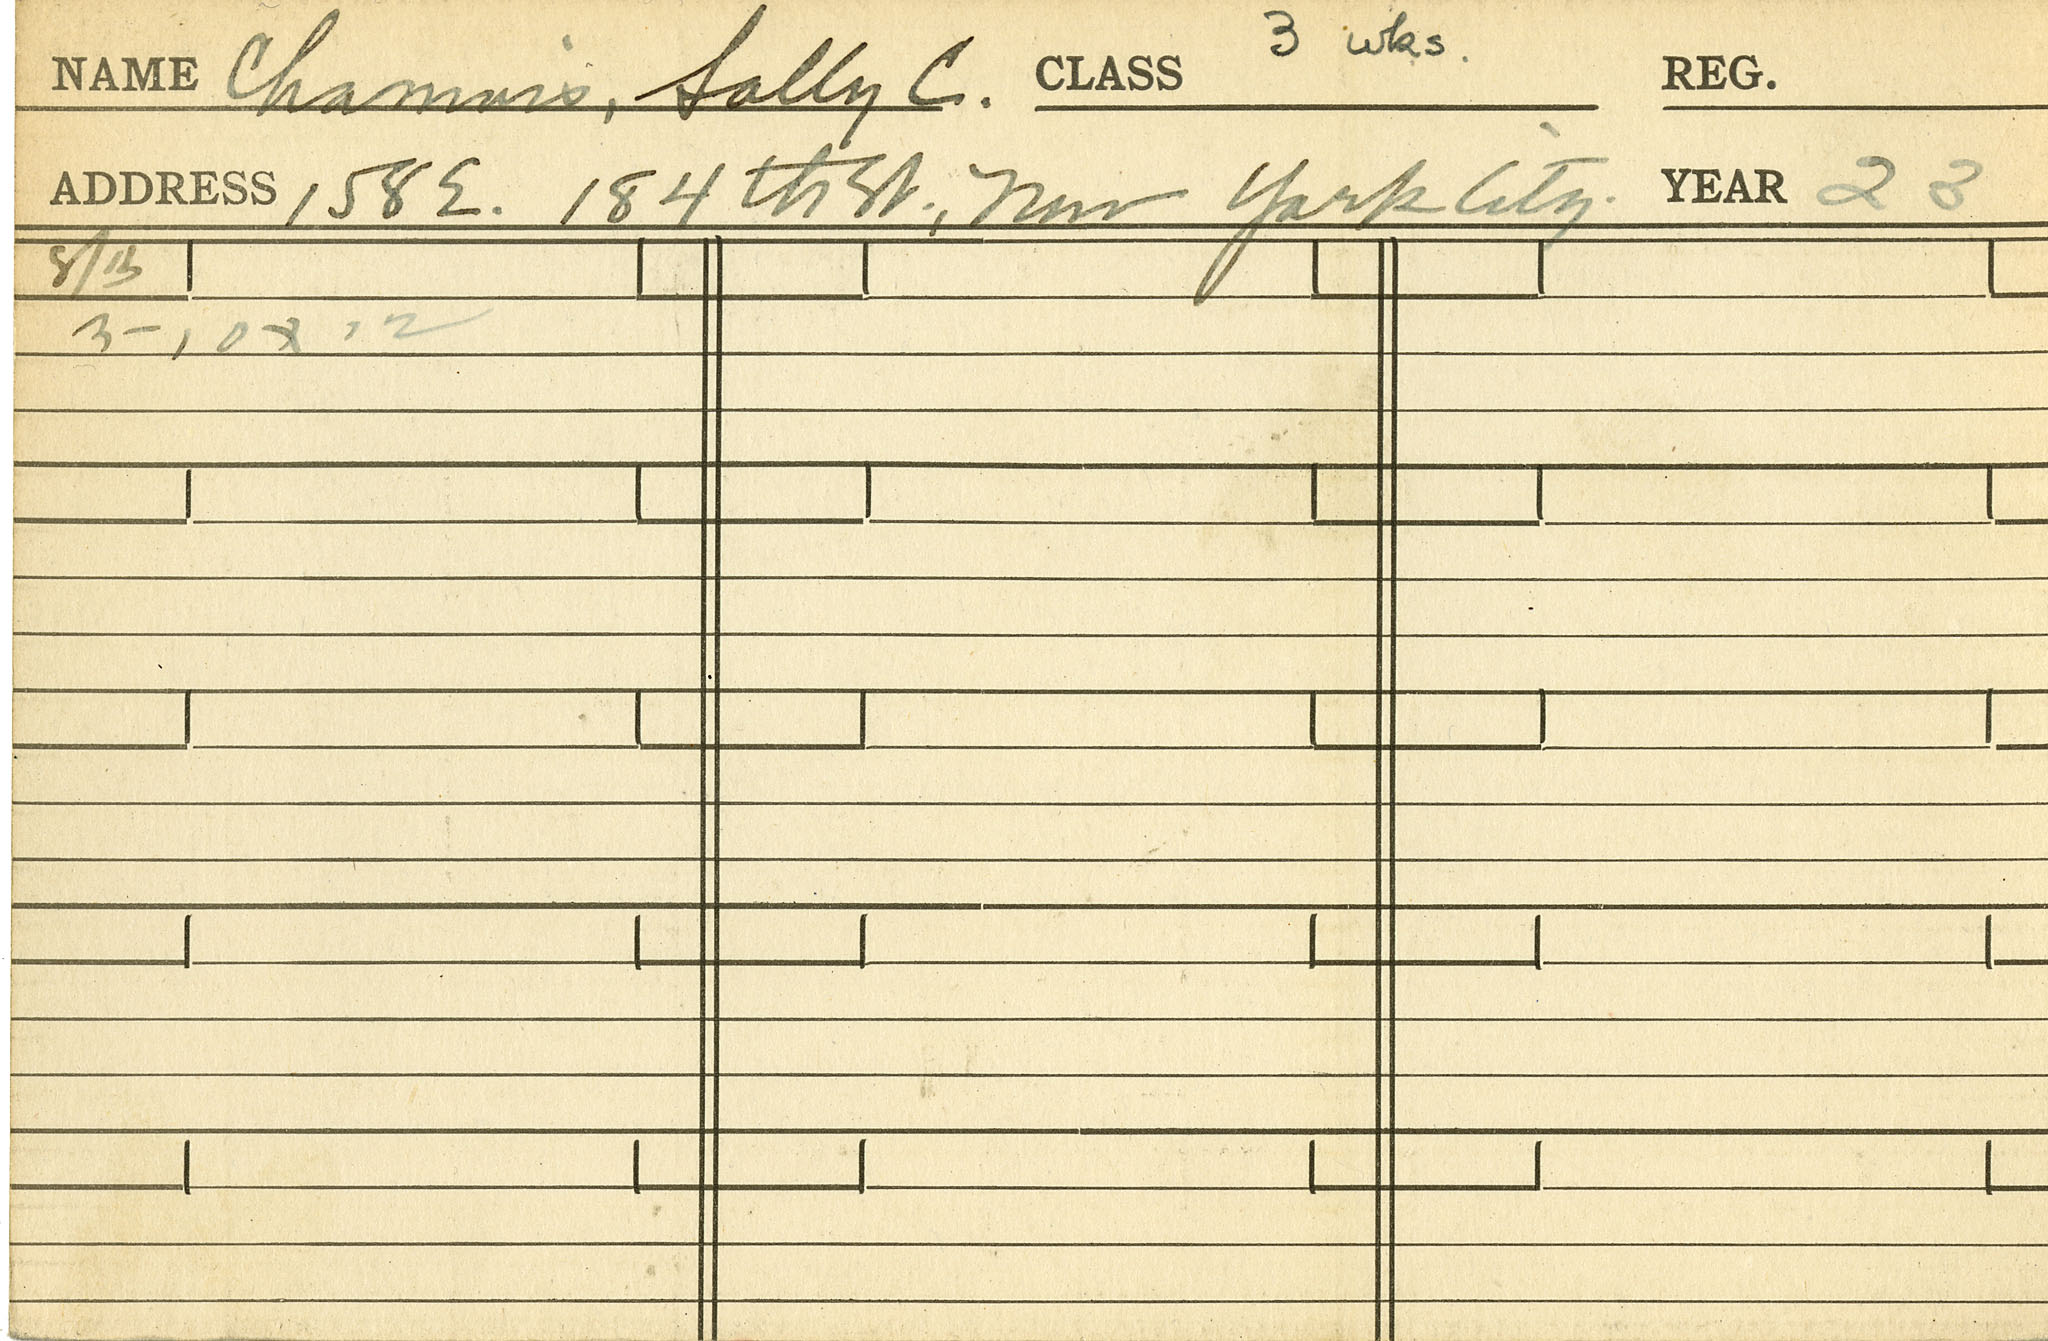 NAME Chamois, Sally C. CLASS 3 wks. REG.
ADDRESS 158 E. 184th St., New York City. YEAR 23
8/13